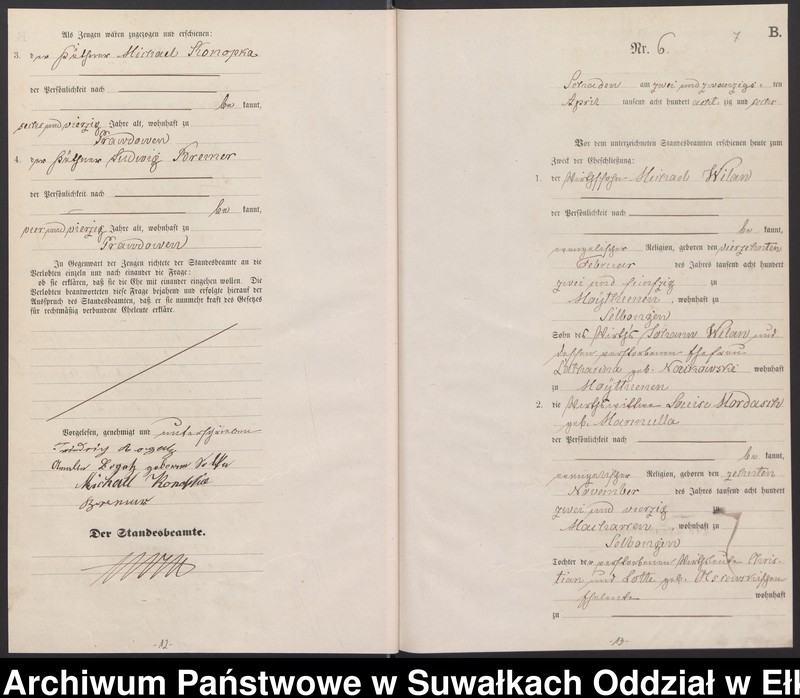 Als Zeugen wären zugezogen und erschienen:
3. der Käthner Michael Konopka
der Persönlichkeit nach
be kannt,
sechs und vierzig Jahre alt, wohnhaft zu
Prawdowen
4. der Käthner Ludwig Bremer
der Persönlichkeit nach
be kannt,
vier und vierzig Jahre alt, wohnhaft zu
Prawdowen
In Gegenwart der Zeugen richtete der Standesbeamte an die
Verlobten einzeln und nach einander die Frage:
ob sie erklären, daß sie die Ehe mit einander eingehen wollen. Die
Verlobten beantworteten diese Frage bejahend und erfolgte hierauf der
Ausspruch des Standesbeamten, daß er sie nunmehr kraft des Gesetzes
für rechtmäßig verbundene Eheleute erkläre.
Vorgelesen, genehmigt und unterschrieben
Friedrich
Amalia geborene
Michael Konopka
Bremer
Der Standesbeamte.
-12-
B.
7
Nr. 6.
am zwei und zwanzigs ten
April tausend acht hundert acht zig und sechs
Vor dem unterzeichneten Standesbeamten erschienen heute zum
Zweck der Eheschließung:
1. der Wirthssohn Michael Wilan
der Persönlichkeit nach
be kannt,
evangelischer Religion, geboren den vierzehnten
Februar des Jahres tausend acht hundert
zwei und fünfzig zu
Maythienen, wohnhaft zu
Selbongen
Sohn des Wirths Johann Wilan und
dessen verstorbenen Ehefrau
Catharina geb. wohnhaft
zu Maythienen
2. die Wirthswittwe Louise Mordasch
geb. Marmulla
der Persönlichkeit nach
be kannt,
evangelischer Religion, geboren den zehnten
November des Jahres tausend acht hundert
zwei und vierzig zu
Macharren, wohnhaft zu
Selbongen
Tochter der verstorbenen Wirthsleute Chris-
tian und Lotte geb.
Eheleute wohnhaft
zu
-13-
Archiwum Państwowe w Suwałkach Oddział w Eł